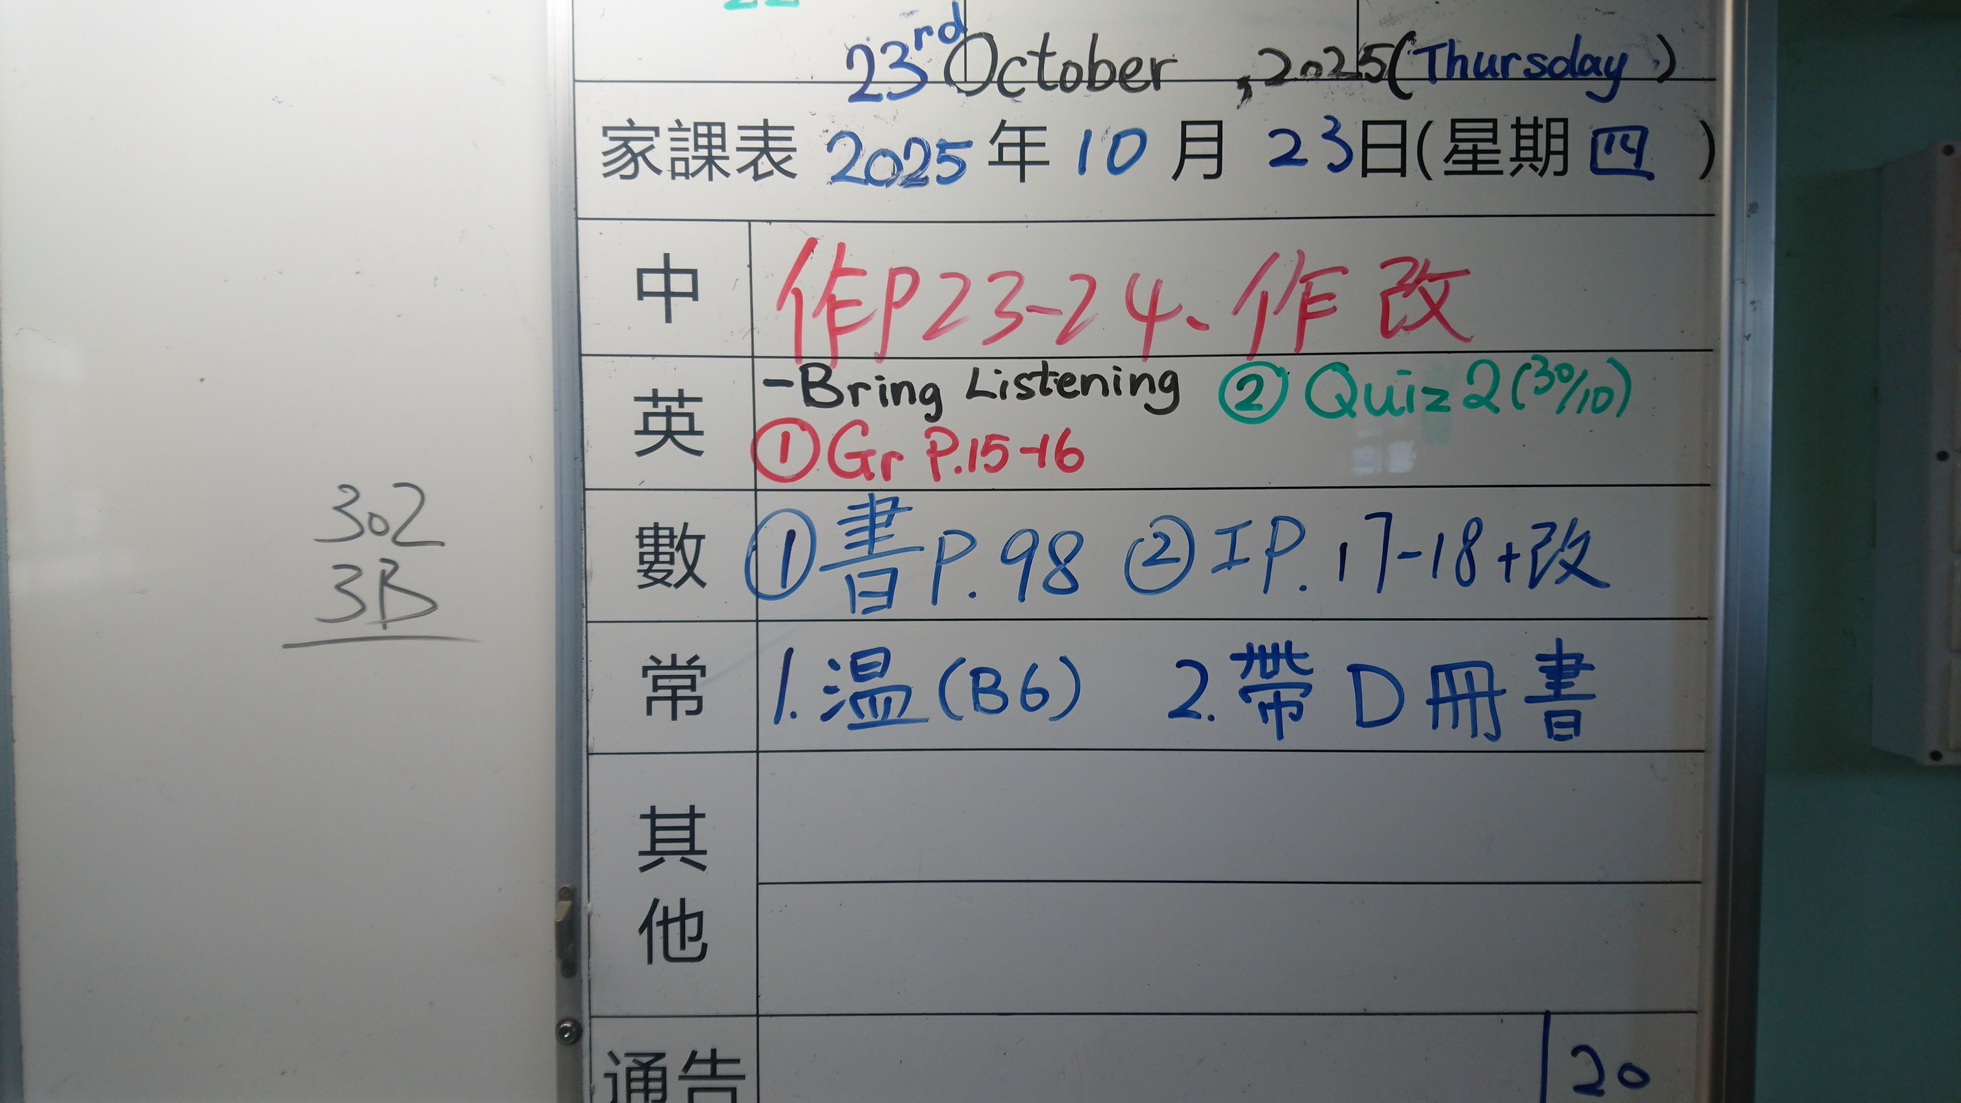 23rd October , 2025 (Thursday)
家課表 2025年 10 月 23日(星期 四 )
中 作P23-24、作改
英 -Bring Listening ② Quiz 2 (30/10)
① Gr P.15-16
數 ① 書 P. 98 ② IP. 17-18 + 改
常 1. 溫 (B6) 2. 帶 D 冊 書
其他
通告 20
302
3B